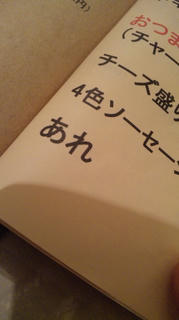 円)
おつま
(チャー
チーズ盛り
4色ソーセージ
あれ